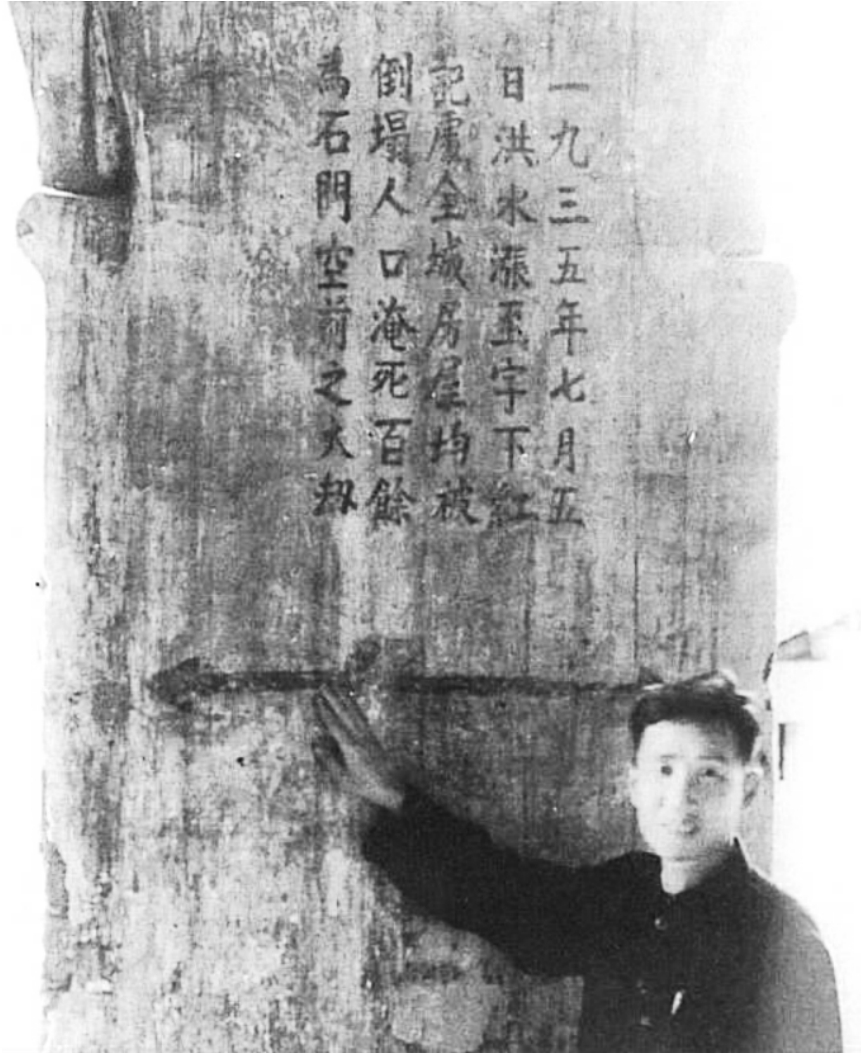 一九三五年七月五
日洪水漲至字下紅
記處全城房屋均被
倒塌人口淹死百餘
為石門空前之大劫